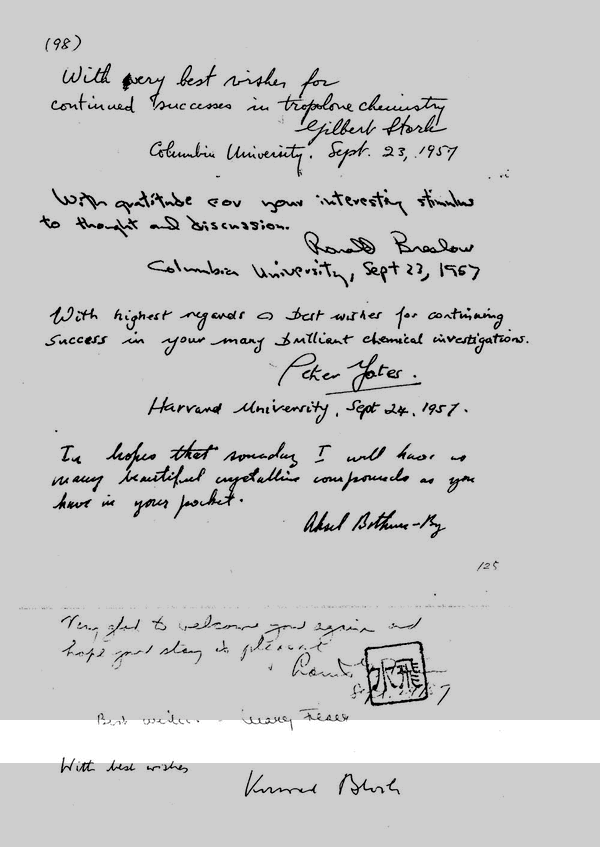 (98)
With very best wishes for
continued successes in tropolone chemistry
Gilbert Stork
Columbia University. Sept. 23, 1957
With gratitude for your interesting stimulus
to thought and discussion.
Ronald Breslow
Columbia University, Sept 23, 1957
With highest regards & best wishes for continuing
success in your many brilliant chemical investigations.
Peter Yates.
Harvard University, Sept 24, 1957.
In hopes that someday I will have as
many beautiful crystalline compounds as you
have in your pocket.
Aksel Bothner-By
125
Very glad to welcome you again and
hope your stay is pleasant
Best wishes Mary Fieser
With best wishes
Konrad Bloch